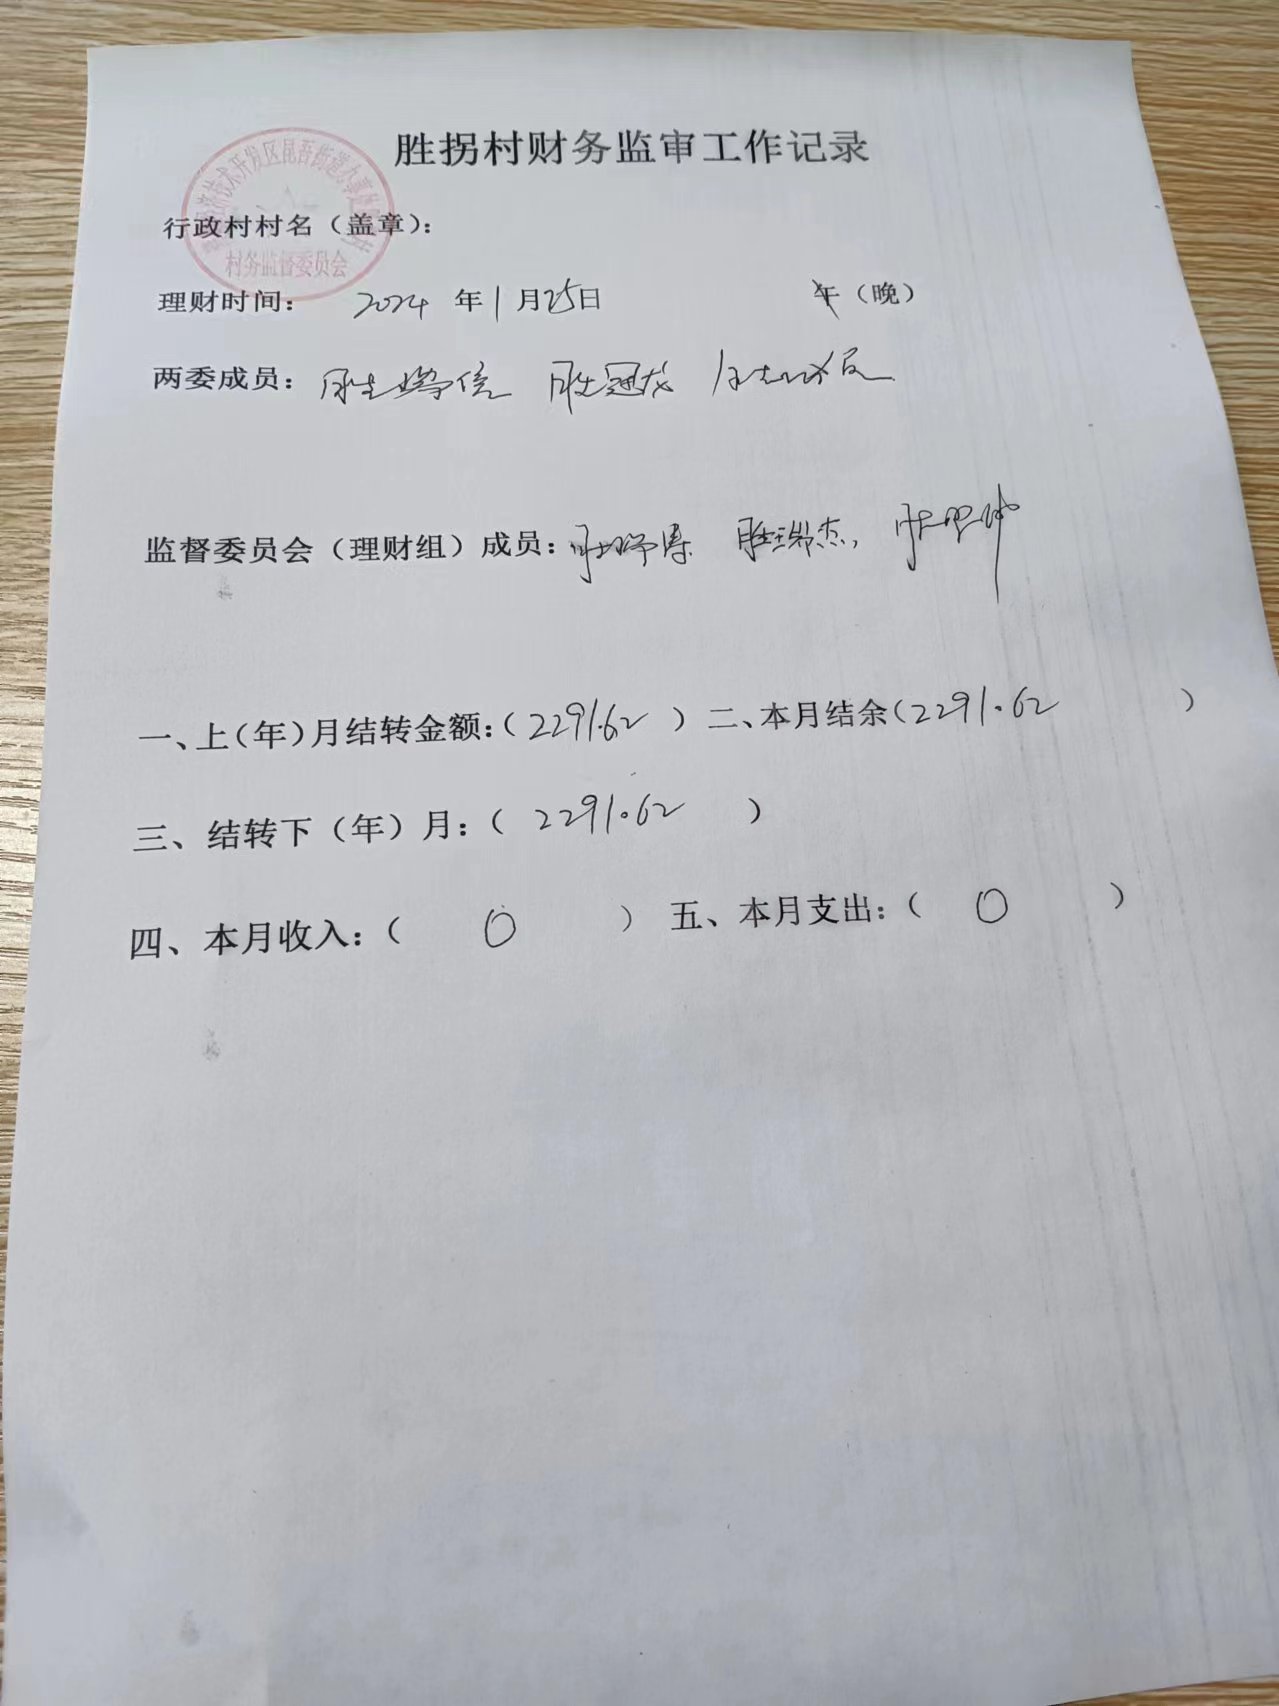 胜拐村财务监审工作记录
技术开发区昆吾街道办事处
村务监督委员会
行政村村名（盖章）：
理财时间： 2024 年 1 月 25 日 午（晚）
两委成员： 胜学信 胜冠龙
监督委员会（理财组）成员： 胜瑞杰，
一、上（年）月结转金额：（2291.62 ） 二、本月结余（2291.62 ）
三、结转下（年）月：（ 2291.62 ）
四、本月收入：（ 0 ） 五、本月支出：（ 0 ）